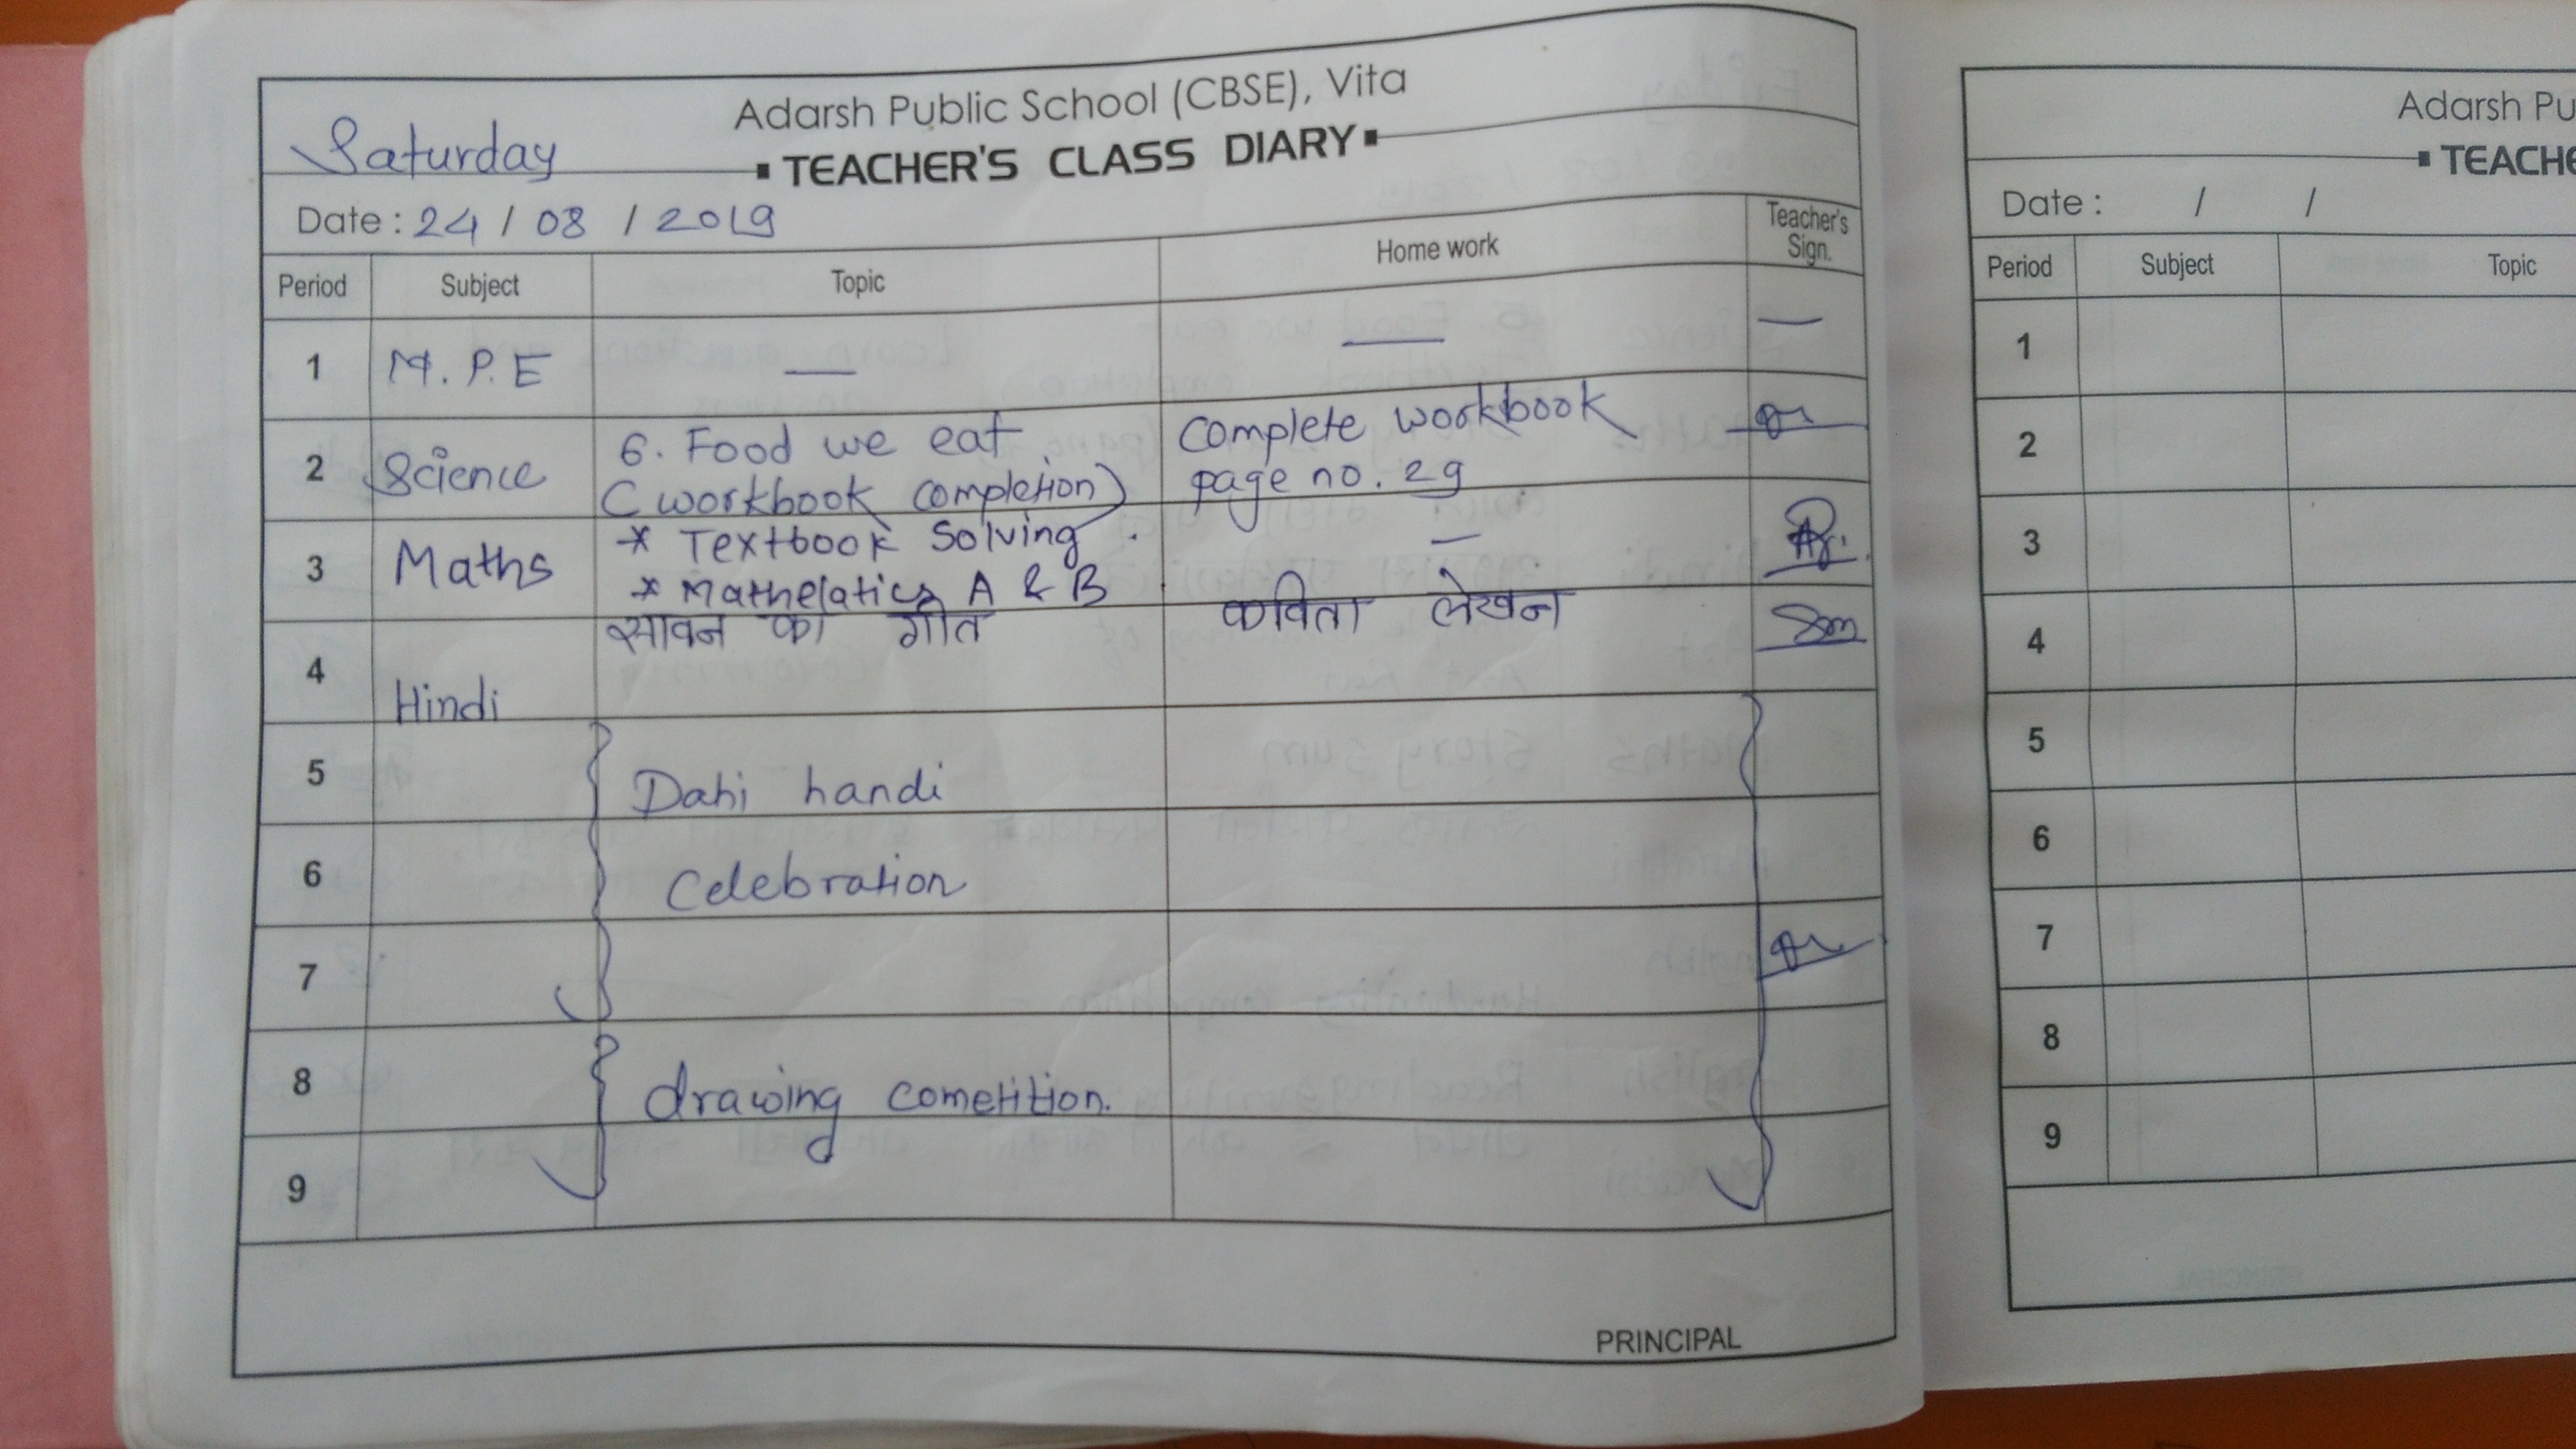 Adarsh Public School (CBSE), Vita
Saturday
TEACHER'S CLASS DIARY
Date : 24 / 08 / 2019
Period Subject Topic Home work Teacher's Sign.
1 M.P.E — — —
2 Science 6. Food we eat Complete workbook
(workbook completion) page no. 29
3 Maths * Textbook Solving. —
* Mathelatics A & B
4 Hindi सावन का गीत कविता लेखन
5 Dahi handi
6 Celebration
7
8 drawing cometition.
9
PRINCIPAL
Adarsh Pu
TEACHE
Date : / /
Period Subject Topic
1
2
3
4
5
6
7
8
9